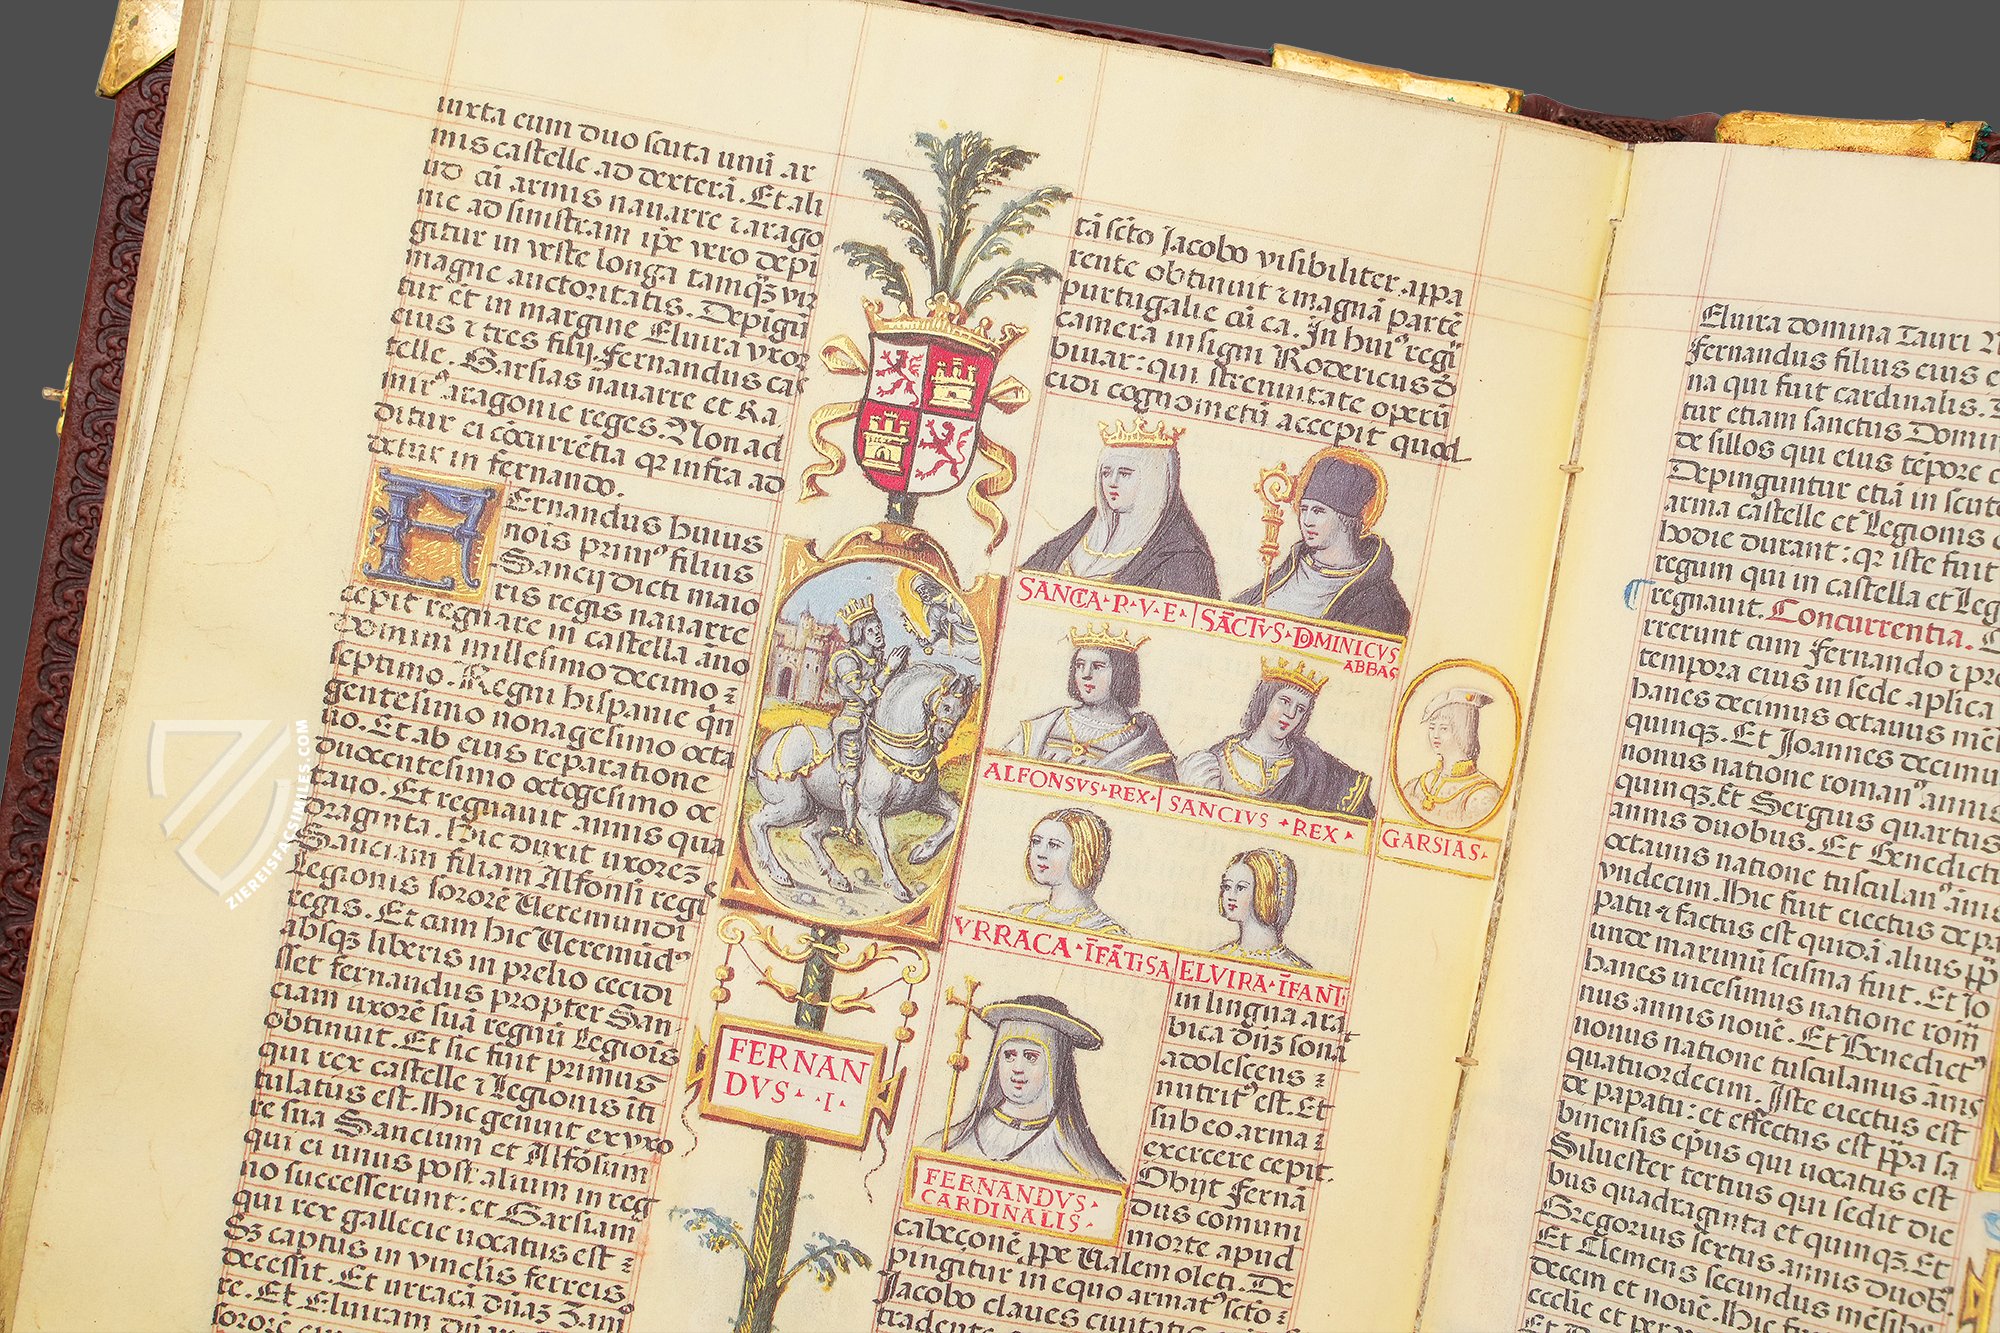 iuxta cum duo scuta unū ar
mis castelle ad dexterā. Et ali
ud cū armis nauarre ⁊ arago
nie ad sinistram ip̄e vero depi
gitur in veste longa tamq̄ȝ vir
magne auctoritatis. Depīgū
tur et in margine Eluira vxor
eius ⁊ tres filij. Fernandus cas
telle. Garsias nauarre et Ra
mirꝰ aragonie reges. Non ad
ditur ei cōcurrētia qꝛ infra ad
detur in fernando.
FErnandus huius
nois primꝰ filius
Sancij dicti maio
ris regis nauarre
cepit regnare in castella año
Domini millesimo decimo ⁊
septimo. Regni hispanie qn̄
gentesimo nonagesimo octa
uo. Et ab eius reparatione
duocentesimo octogesimo oc
tauo. Et regnauit annis qua
draginta. Hic duxit uxoreȝ
Sanciam filiam Alfonsi regi
Legionis sororē Ueremundi
regis. Et cum hic Ueremūdꝰ
absqȝ liberis in prelio cecidi
sset fernandus propter San-
ciam uxorē suā regnū Legiōis
obtinuit. Et sic fuit primus
qui rex castelle ⁊ Legionis īti
tulatus est. Hic genuit ex vxo
re sua Sancium et Alfōsum
qui ei unus post alium in reg
no successerunt: et Garsiam
qui rex gallecie uocatus est ⁊
Sȝ captus in vinclis ferreis
decessit. Et urracā dn̄aȝ Zam
re. Et Eluiram
FERNAN
DVS · I ·
tā scto Jacobo visibiliter appa
rente obtinuit ⁊ magnā partē
purtugalie cū ea. In huiꝰ regi
camera insigni Rodericus đ
biuar: qui strenuitate operū
cidi cognometū accepit quod
SANCTA · R · V · E · SĀCTVS · DOMINICVS
ABBAS
ALFONSVS · REX · SANCIVS · REX ·
GARSIAS ·
VRRACA · ĪFĀTISA ELVIRA · ĪFANT
FERNANDVS ·
CARDINALIS ·
in lingua ara
bica dn̄ȝ sonā
adolescens ⁊
nutritꝰ est. Et
sub eo arma ⁊
exercere cepit.
Obijt Fernā
dus comuni
morte apud
cabeçonē ꝓpe Ualemoleti. De
pingitur in equo armatꝰ scto ⁊
Jacobo claues ciuitatis
tradente
Eluira domina Tauri
Fernandus filius eius
na qui fuit cardinalis.
tur etiam sanctus Domin
de sillos qui eius tēpore
Depinguntur etiā in scut
arma castelle et Legionis
hodie durant: qꝛ iste fuit
regum qui in castella et Leg
regnauit. Concurrentia.
rrerunt cum Fernando ⁊
tempora eius in sede aplica
hanes decimus octauus mē
quinqȝ. Et Joannes decimu
nonus natione romanꝰ annis
quinqȝ. Et Sergius quartus
annis duobus. Et Benedicti
octauus natione tusculanꝰ
vndecim. Hic fuit eiectus de pa
patu ⁊ factus est quidā alius p̄p
unde maximū scisma fuit. Et Jo
hanes uicesimus natione rom̄
nus annis nouē. Et Benedictꝰ
nonus natione tusculanus
quatuordecim. Iste eiectus est
de papatu: et effectus est p̄pa sa
binensis ep̄us qui uocatus est
Siluester tertius qui sedit die
bus quadraginta et quinqȝ. Et
Gregorius sextus annis duobꝰ
Et Clemens secundus mēsibꝰ
decem et nouē. Hic
ZIEREISFACSIMILES.COM